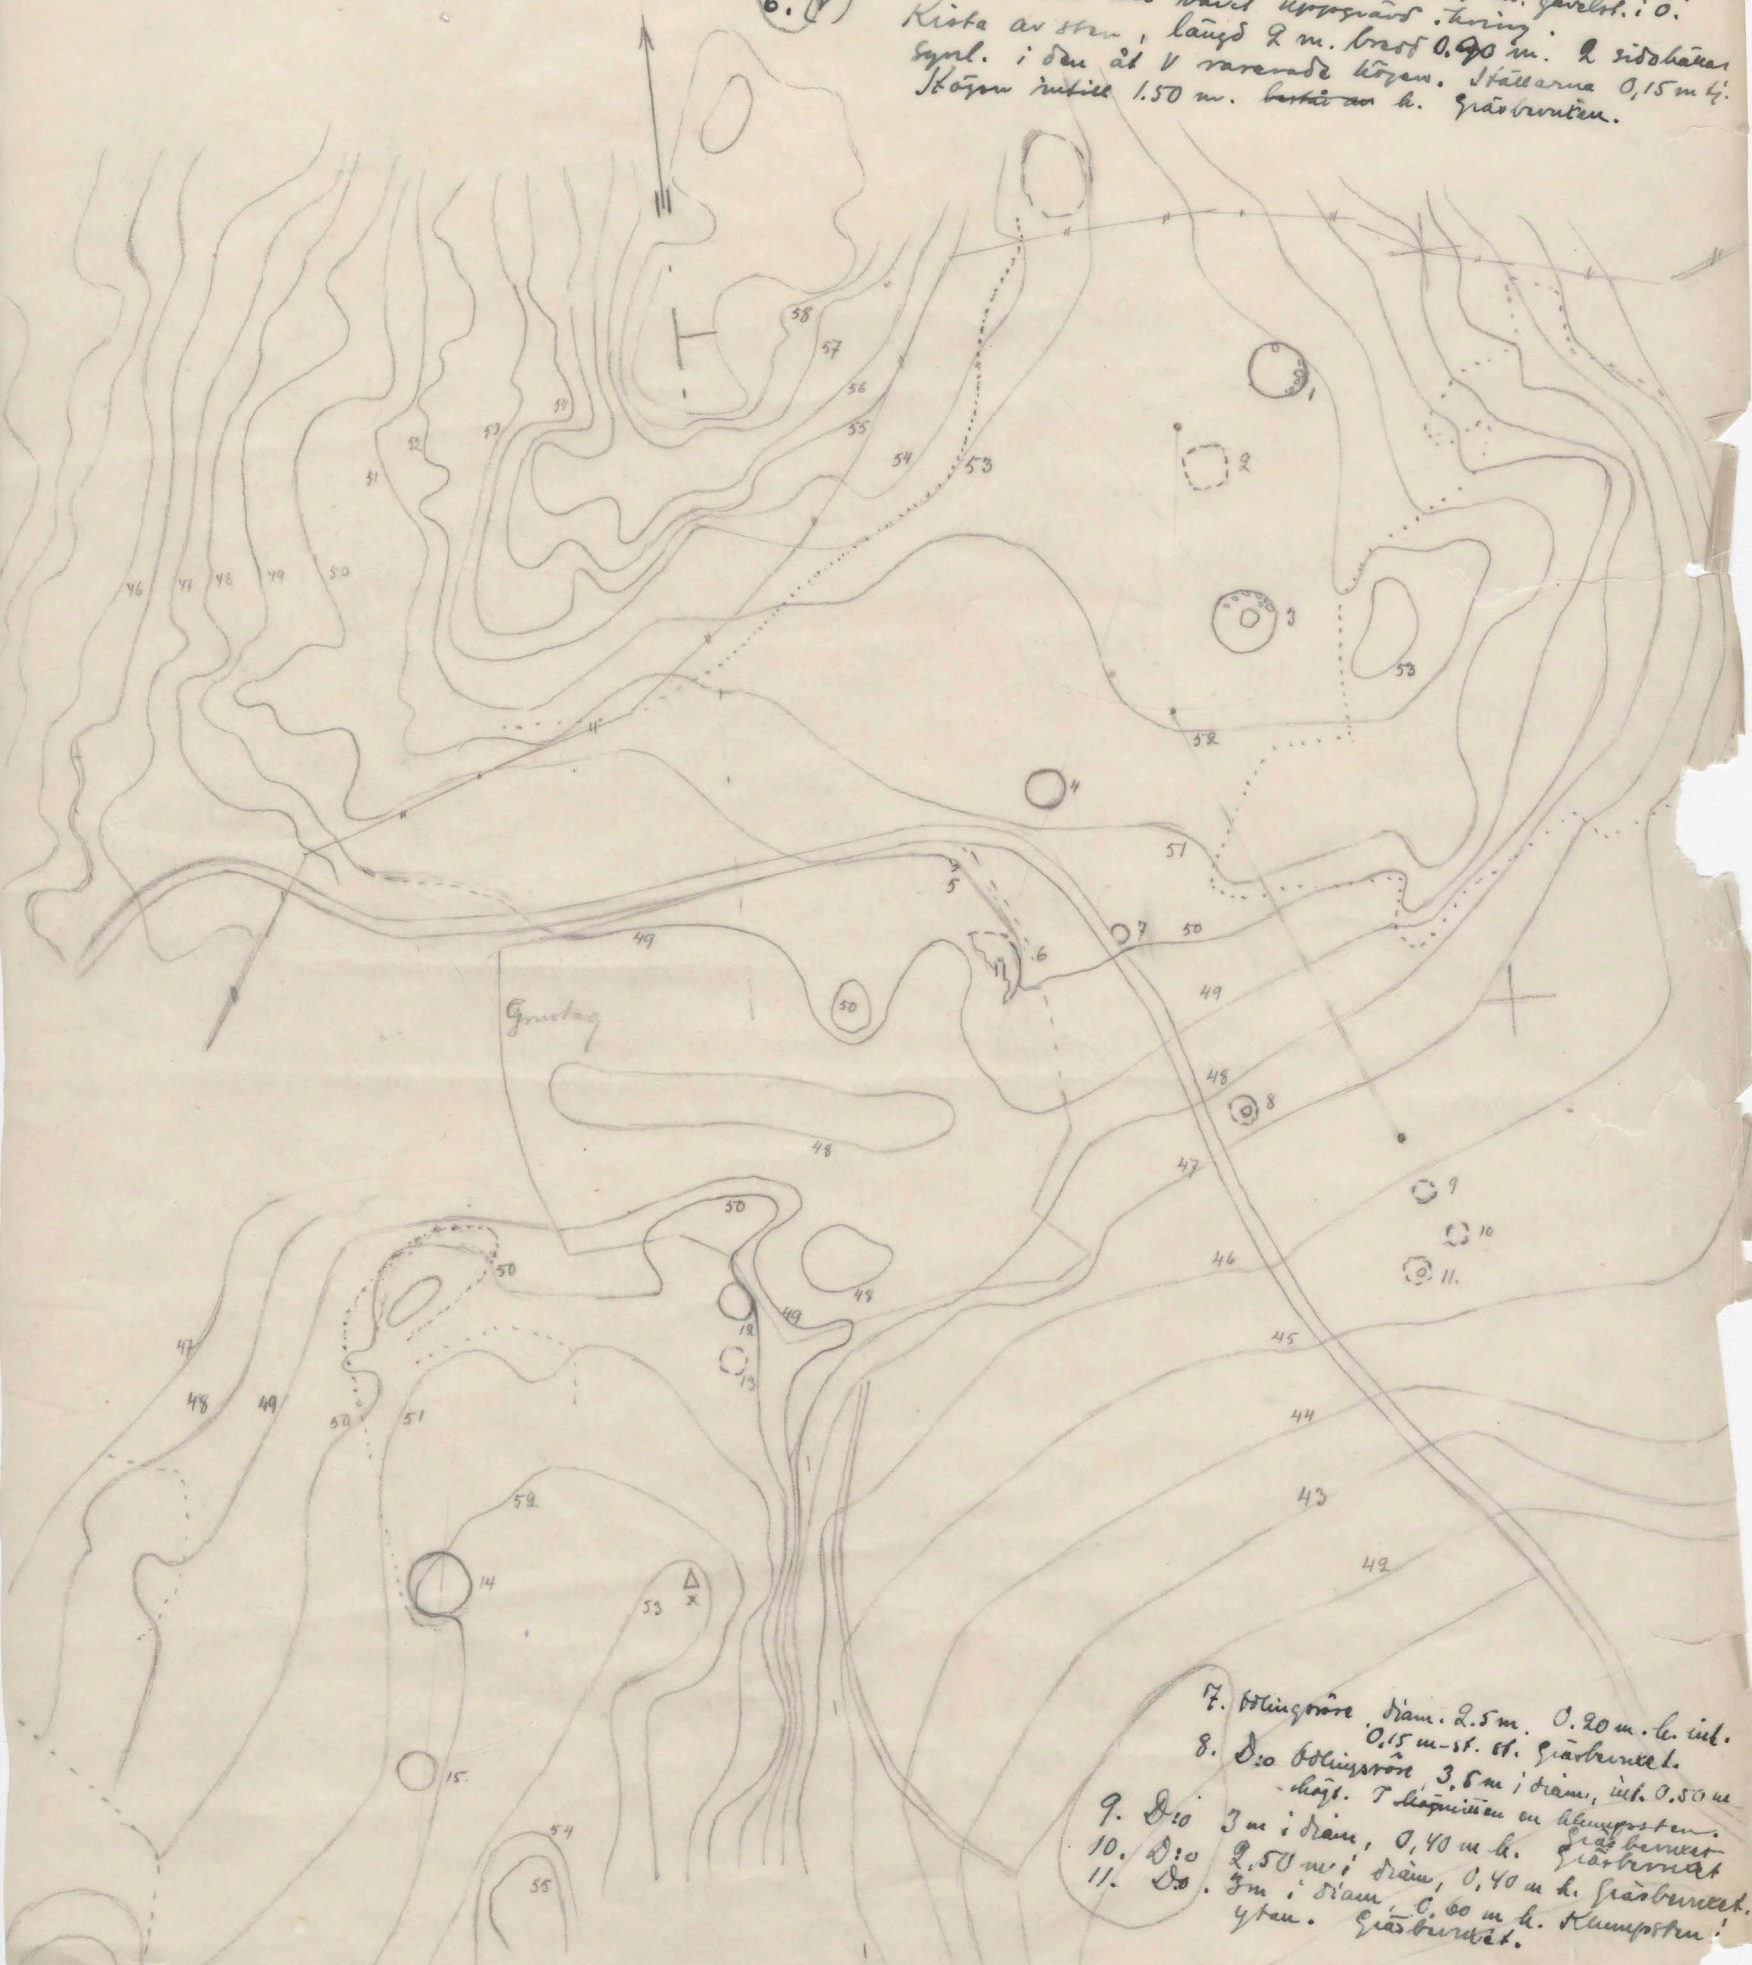 6. (V)
uppgrävd kring.
Kista av sten, längd 2 m. bredd 0.90 m. 2 sidohällar
synl. i den åt V raserade högen. Hällarna 0,15 m tj.
Högen intill 1.50 m. består av h. Gräsbevuxen.
58
57
56
55
54
53
54
53
52
51
1
2
46
47
48
49
50
3
53
52
4
51
5
49
7
50
6
50
49
Grustag
48
8
48
47
9
10
11.
50
46
50
48
49
12
13
45
47
48
49
50
51
44
52
43
14
53
42
15.
54
55
7. Odlingsröse, diam. 2.5 m. 0.20 m. h. int.
0,15 m-st. st. Gräsbevuxet.
8. D:o Odlingsröse, 3,5 m i diam, int. 0.50 m
högt. I högmitten en klumpsten.
Gräsbevuxet
9. D:o 3 m i diam, 0,40 m h. Gräsbevuxet
10. D:o 2,50 m i diam, 0,40 m h. Gräsbevuxet.
11. D:o. 3m i diam, 0.60 m h. Klumpsten i
ytan. Gräsbevuxet.